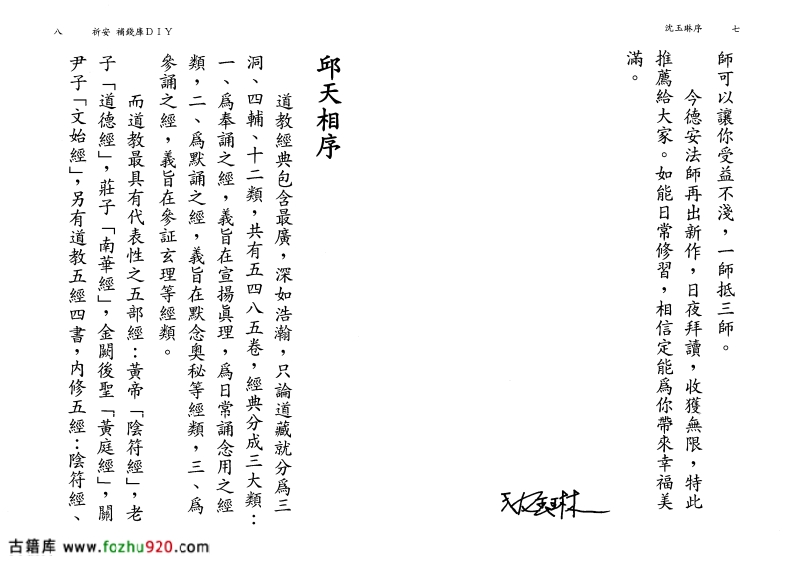 沈玉琳序　七
師可以讓你受益不淺，一師抵三師。
今德安法師再出新作，日夜拜讀，收獲無限，特此
推薦給大家。如能日常修習，相信定能爲你帶來幸福美
滿。
八　祈安 補錢庫DIY
邱天相序
道教經典包含最廣，深如浩瀚，只論道藏就分爲三
洞、四輔、十二類，共有五四八五卷，經典分成三大類：
一、爲奉誦之經，義旨在宣揚眞理，爲日常誦念用之經
類，二、爲默誦之經，義旨在默念奧秘等經類，三、爲
參誦之經，義旨在參証玄理等經類。
而道教最具有代表性之五部經：黃帝「陰符經」，老
子「道德經」，莊子「南華經」，金闕後聖「黃庭經」，關
尹子「文始經」，另有道教五經四書，內修五經：陰符經、
古籍库 www.fozhu920.com